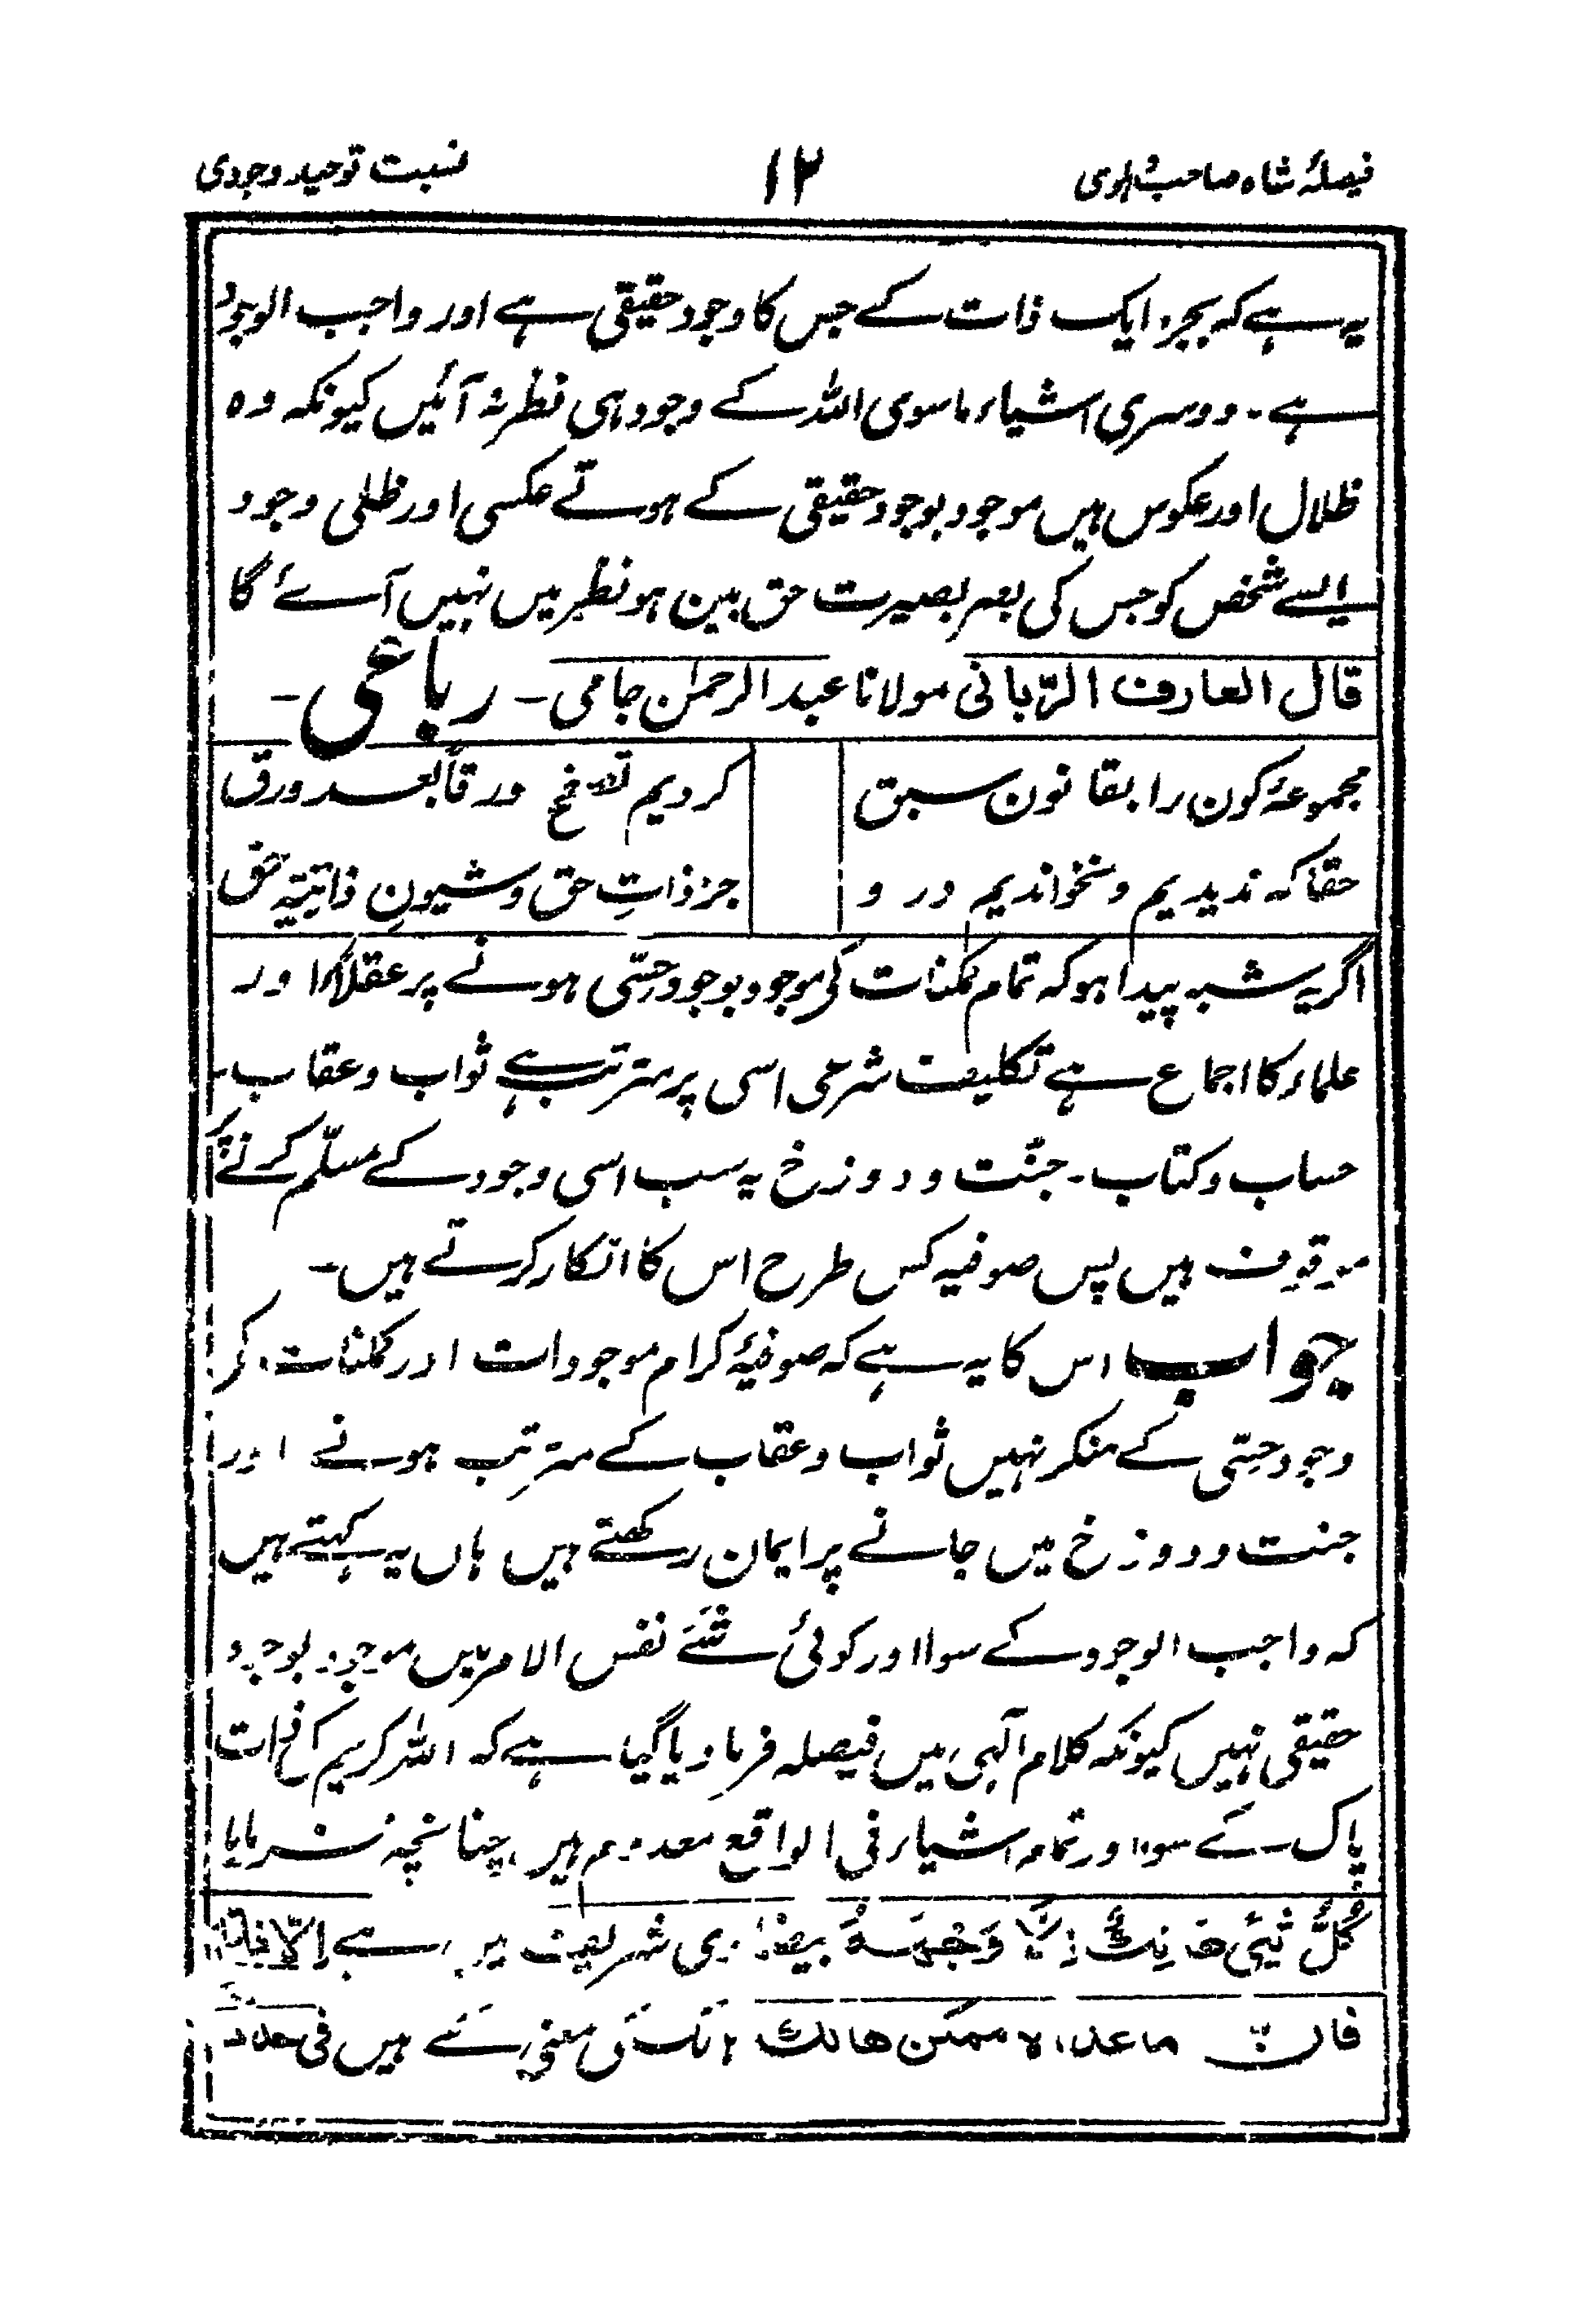 فیصلۂ شاہ صاحب دہلوی ۱۲ نسبت توحید وجودی
یہ ہے کہ بجز ایک ذات کے جس کا وجود حقیقی ہے اور واجب الوجود
ہے۔ دوسری اشیاء ماسوی اللہ کے وجود ہی نظر نہ آئیں کیونکہ وہ
ظلال اور عکوس ہیں موجود بوجود حقیقی کے ہوتے عکسی اور ظلی وجود
ایسے شخص کو جس کی بصر بصیرت حق بین ہو نظر میں نہیں آئے گا
قال العارف الرّبانی مولانا عبدالرحمٰن جامی۔ رباعی۔
مجموعۂ کون را بقانون سبق کردیم تصفح ورقاً بعد ورق
حقا کہ ندیدیم و نخواندیم درو جز ذاتِ حق و شیونِ ذاتیّۂ حق
اگر یہ شبہ پیدا ہو کہ تمام ممکنات کی موجود بوجود حِسّی ہونے پر عقلاء اور
علماء کا اجماع ہے تکلیف شرعی اسی پر مترتب ہے ثواب و عقاب۔
حساب و کتاب۔ جنّت و دوزخ یہ سب اسی وجود کے مسلّم کرنے پر
موقوف ہیں پس صوفیہ کس طرح اس کا انکار کرتے ہیں۔
جواب اس کا یہ ہے کہ صوفیۂ کرام موجودات اور ممکنات کی
وجود حِسّی کے منکر نہیں ثواب و عقاب کے مترتِب ہونے اور
جنت و دوزخ میں جانے پر ایمان رکھتے ہیں ہاں یہ کہتے ہیں
کہ واجب الوجود کے سوا اور کوئی شَئے نفس الامر میں موجود بوجود
حقیقی نہیں کیونکہ کلام الٰہی میں فیصلہ فرما دیا گیا ہے کہ اللہ کریم کی ذات
پاک کے سوا اور تمام اشیاء فی الواقع معدوم ہیں چنانچہ فرمایا
کُلُّ شَیْئٍ ھَالِکٌ اِلَّا وَجْہَہٗ بیضاوی شریف میں ہے اِلّا ذاتہ
فان ما عداہ ممکن ھالک معنی ہیں فی حد